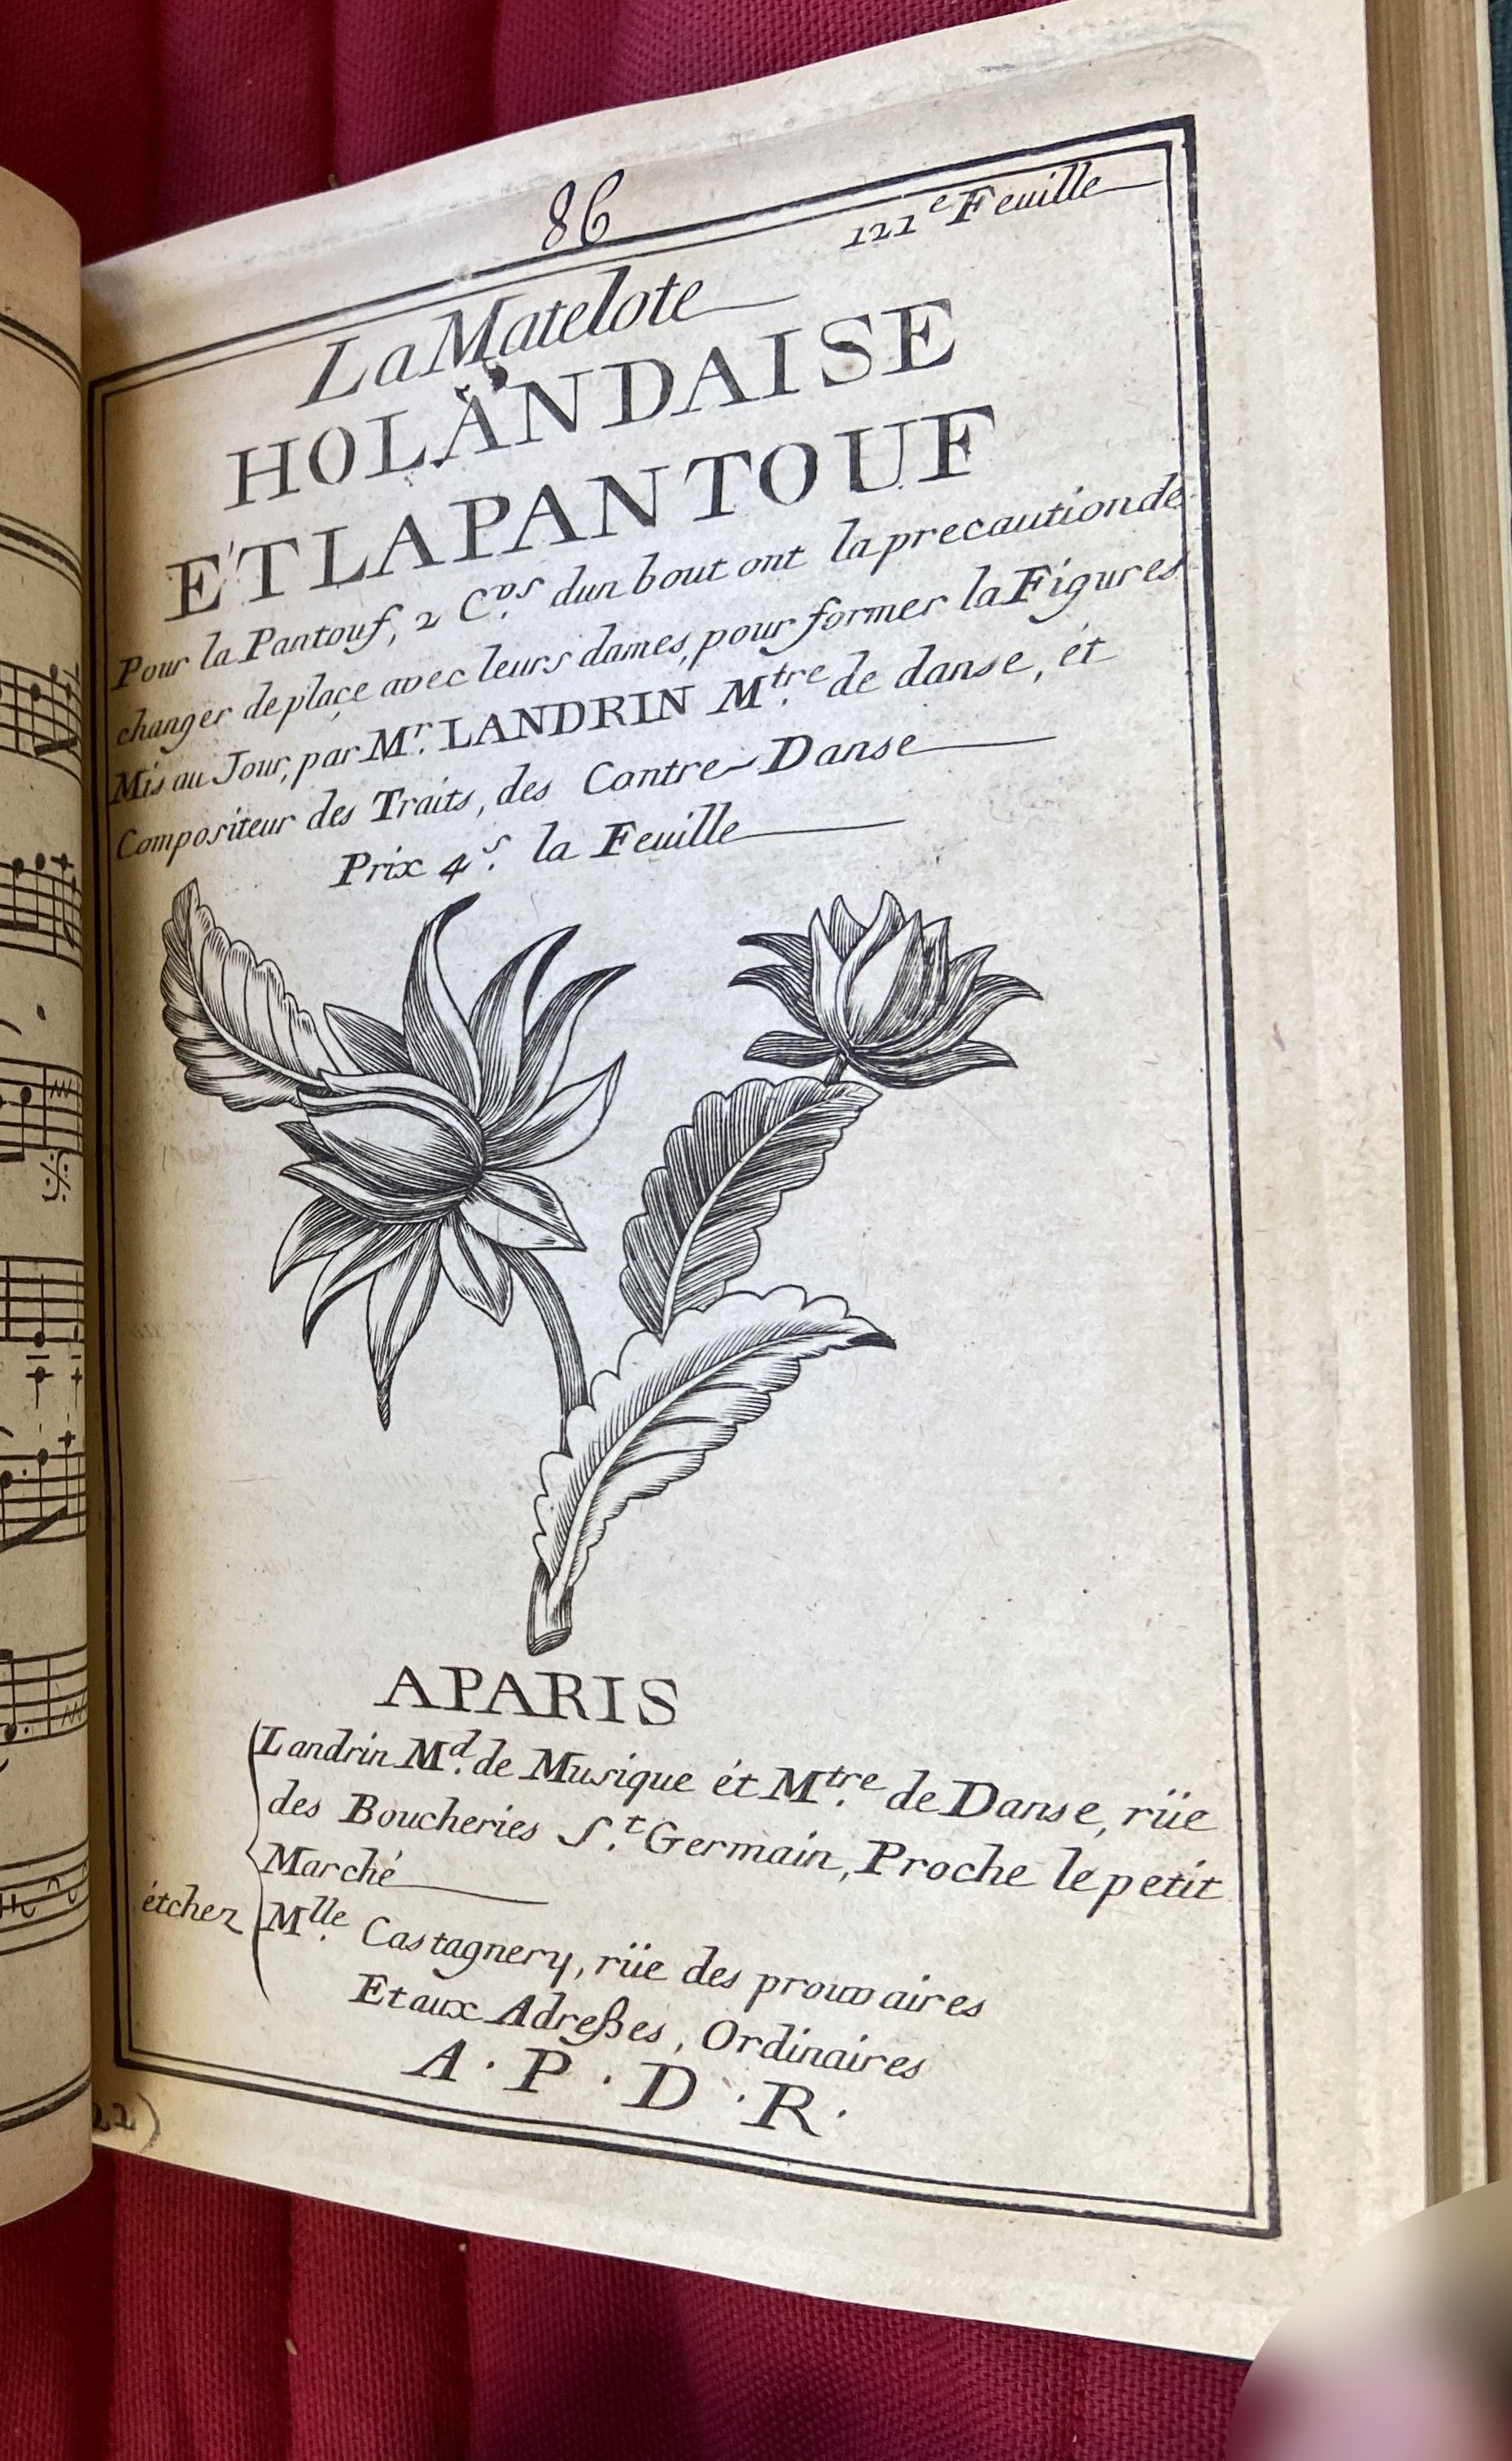 86
121e Feuille
La Matelote
HOLANDAISE
ET LA PANTOUF
Pour la Pantouf, 2 C.ps dun bout ont la precaution de
changer de plaçe avec leurs dames, pour former la Figures
Mis au Jour, par Mr. LANDRIN M.tre de danse, ét
Compositeur des Traits, des Contre-Danse
Prix 4.s la Feuille
A PARIS
Landrin M.d de Musique ét M.tre de Danse, rüe
des Boucheries S.t Germain, Proche le petit
Marché
ét chez
M.lle Castagnery, rüe des prouvaires
Et aux Adreßes, Ordinaires
A. P. D. R.
22)